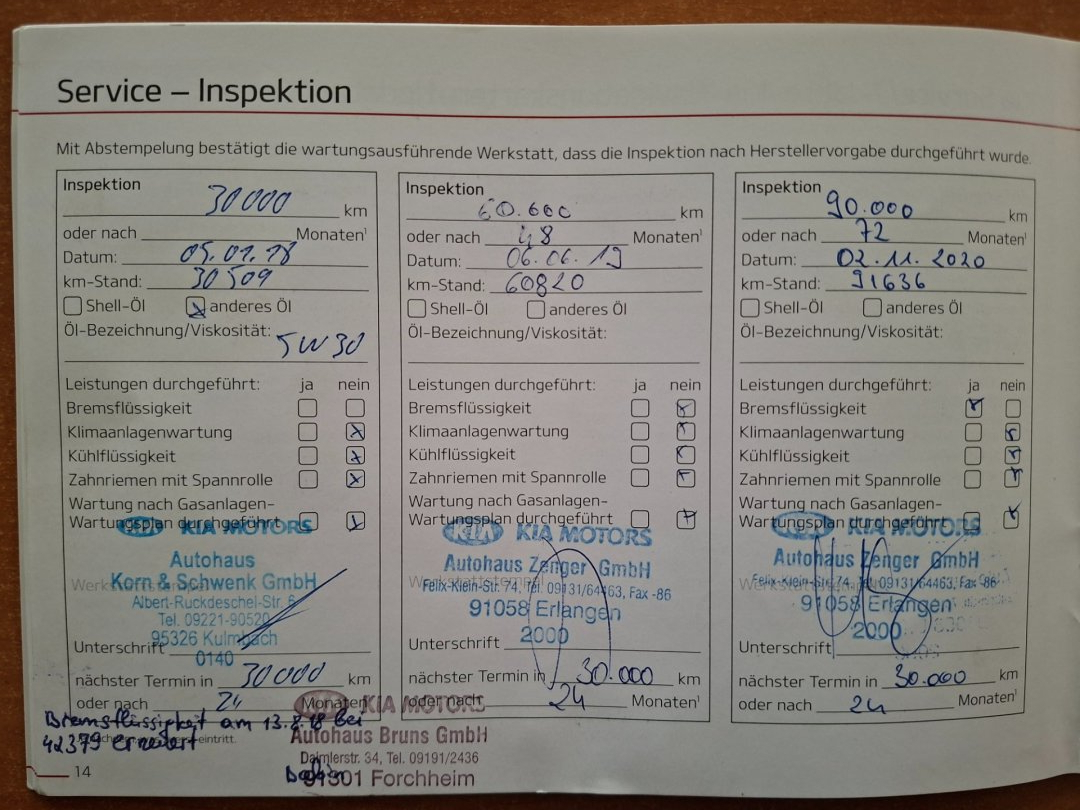 Service – Inspektion
Mit Abstempelung bestätigt die wartungsausführende Werkstatt, dass die Inspektion nach Herstellervorgabe durchgeführt wurde.
Inspektion
30000 km
oder nach Monaten¹
Datum: 05.01.18
km-Stand: 30509
Shell-Öl anderes Öl
Öl-Bezeichnung/Viskosität:
5W30
Leistungen durchgeführt: ja nein
Bremsflüssigkeit
Klimaanlagenwartung
Kühlflüssigkeit
Zahnriemen mit Spannrolle
Wartung nach Gasanlagen-
Wartungsplan durchgeführt
KIA MOTORS
Autohaus
Korn & Schwenk GmbH
Albert-Ruckdeschel-Str. 6
Tel. 09221-90520
95326 Kulmbach
Unterschrift
0140
nächster Termin in 30000 km
oder nach 24 Monaten
Bremsflüssigkeit am 13.8.18 bei
42379 erneuert
14
KIA MOTORS
Autohaus Bruns GmbH
Daimlerstr. 34, Tel. 09191/2436
91301 Forchheim
Inspektion
60.000 km
oder nach 48 Monaten¹
Datum: 06.06.19
km-Stand: 60820
Shell-Öl anderes Öl
Öl-Bezeichnung/Viskosität:
Leistungen durchgeführt: ja nein
Bremsflüssigkeit
Klimaanlagenwartung
Kühlflüssigkeit
Zahnriemen mit Spannrolle
Wartung nach Gasanlagen-
Wartungsplan durchgeführt
KIA KIA MOTORS
Autohaus Zenger GmbH
Felix-Klein-Str. 74, Tel. 09131/64463, Fax -86
Werkstattstempel
91058 Erlangen
2000
Unterschrift
nächster Termin in 30.000 km
oder nach 24 Monaten¹
Inspektion
90.000 km
oder nach 72 Monaten¹
Datum: 02.11.2020
km-Stand: 91636
Shell-Öl anderes Öl
Öl-Bezeichnung/Viskosität:
Leistungen durchgeführt: ja nein
Bremsflüssigkeit
Klimaanlagenwartung
Kühlflüssigkeit
Zahnriemen mit Spannrolle
Wartung nach Gasanlagen-
Wartungsplan durchgeführt
KIA MOTORS
Autohaus Zenger GmbH
Felix-Klein-Str. 74, Tel. 09131/64463, Fax -86
91058 Erlangen
2000
Unterschrift
nächster Termin in 30.000 km
oder nach 24 Monaten¹